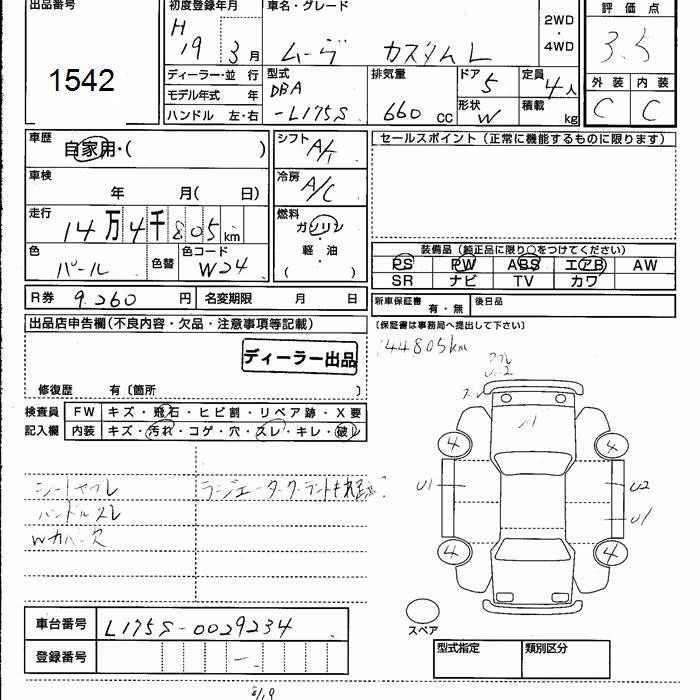 出品番号 初度登録年月 車名・グレード 評価点
1542 H 19 3月 ムーヴ カスタムL 2WD・4WD 3.5
ディーラー・並 行 型式 排気量 ドア 定員 外装 内装
モデル年式 年 DBA 5 4人 C C
ハンドル 左・右 -L175S 660 CC 形状 W 積載 kg
車歴 自家用・( ) シフト A/T セールスポイント(正常に機能するものに限ります)
車検 年 月( 日) 冷房 A/C
走行 14万4千805km 燃料 ガソリン・軽・油( )
色 パール 色替 色コード W24
装備品(純正品に限り○をつけてください)
PS PW ABS エアB AW
SR ナビ TV カワ
R券 9.260 円 名変期限 月 日 新車保証書 有・無 後日品
出品店申告欄(不良内容・欠品・注意事項等記載) (保証書は事務局へ提出して下さい)
ディーラー出品 144805km
修復歴 有〔箇所 〕
検査員 FW キズ・飛石・ヒビ割・リペア跡・X要
記入欄 内装 キズ・汚れ・コゲ・穴・スレ・キレ・破レ
スレ
A1
4 4
U1 U2
U1
4 4
シートヤブレ
ハンドルスレ
Wカバー欠
スペア
車台番号 L175S-0029234
登録番号 -
型式指定 類別区分